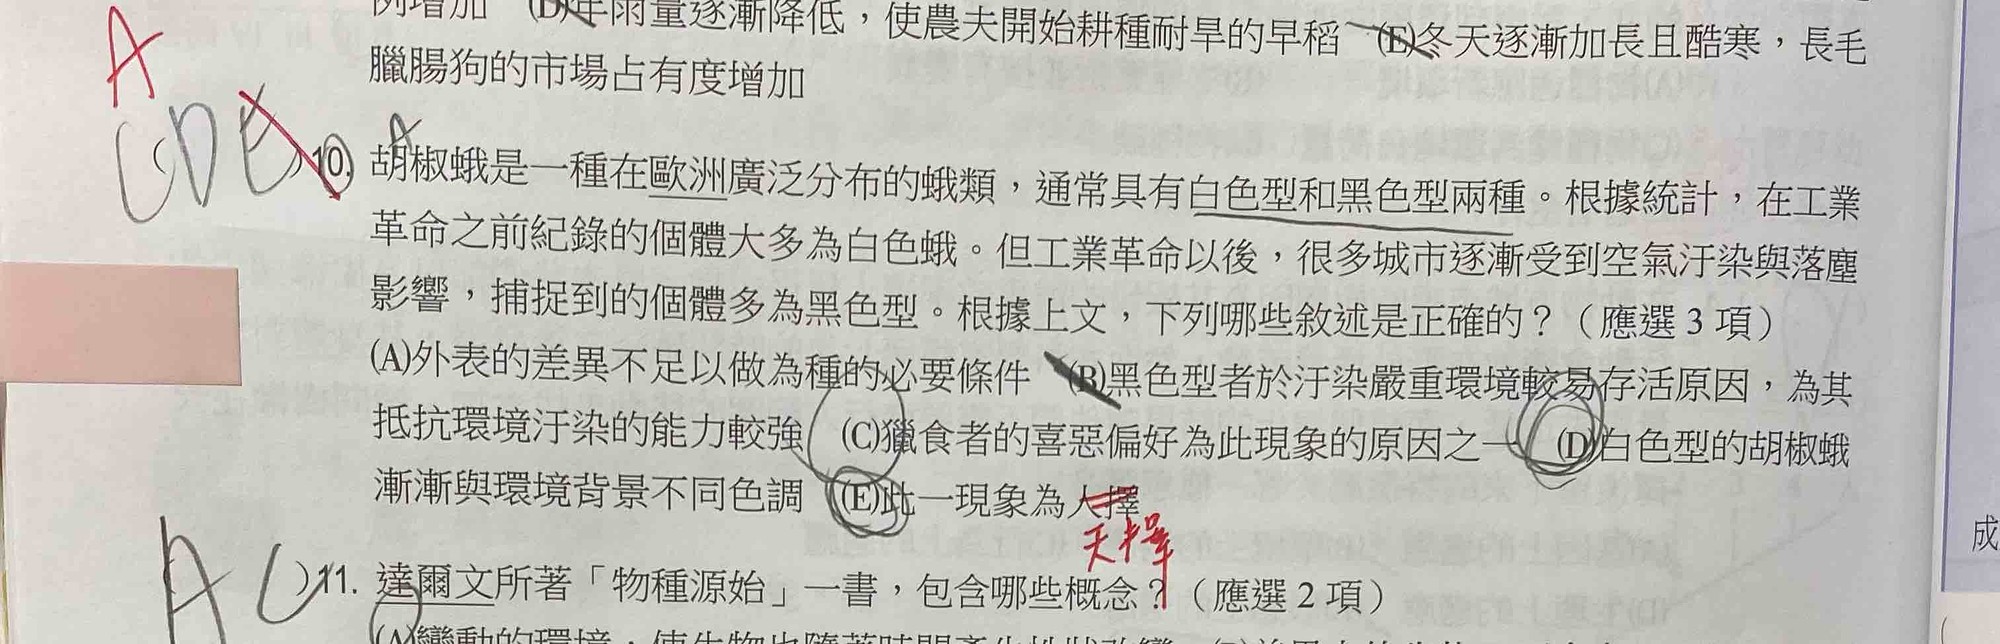 例增加 (D)年雨量逐漸降低，使農夫開始耕種耐旱的早稻 (E)冬天逐漸加長且酷寒，長毛
臘腸狗的市場占有度增加
A
CDE
A
)10. 胡椒蛾是一種在歐洲廣泛分布的蛾類，通常具有白色型和黑色型兩種。根據統計，在工業
革命之前紀錄的個體大多為白色蛾。但工業革命以後，很多城市逐漸受到空氣汙染與落塵
影響，捕捉到的個體多為黑色型。根據上文，下列哪些敘述是正確的？（應選 3 項）
(A)外表的差異不足以做為種的必要條件 (B)黑色型者於汙染嚴重環境較易存活原因，為其
抵抗環境汙染的能力較強 (C)獵食者的喜惡偏好為此現象的原因之一 (D)白色型的胡椒蛾
漸漸與環境背景不同色調 (E)此一現象為人擇
天擇
A C
)11. 達爾文所著「物種源始」一書，包含哪些概念？（應選 2 項）
成